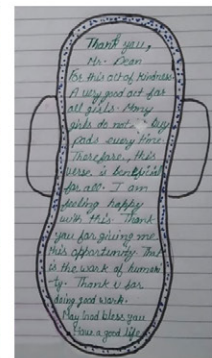 Thank you,
Mr. Dean
For this act of kindness.
A very good act for
all girls. Many
girls do not buy
pads every time.
Therefore, this
verse is beneficial
for all. I am
feeling happy
with this. Thank
you for giving me
this opportunity. That
is the work of humani
ty. Thank u for
doing good work.
May God bless you
Have a good life